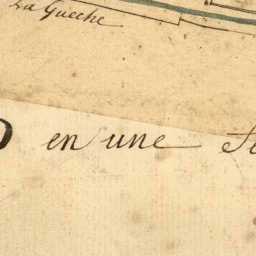 La Gueche
en une